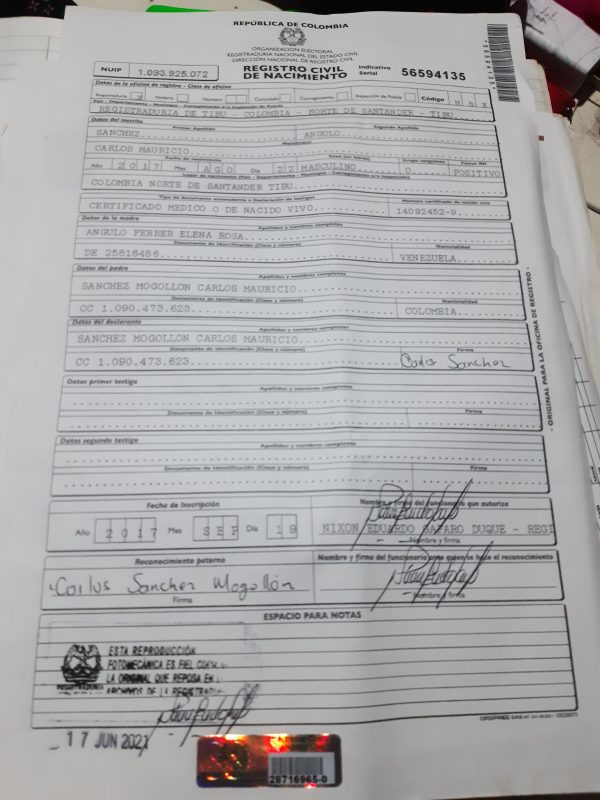 REPÚBLICA DE COLOMBIA
ORGANIZACIÓN ELECTORAL
REGISTRADURÍA NACIONAL DEL ESTADO CIVIL
DIRECCIÓN NACIONAL DE REGISTRO CIVIL
NUIP 1.093.925.072
REGISTRO CIVIL
DE NACIMIENTO
Indicativo
Serial
56594135
*56594135*
Datos de la oficina de registro - Clase de oficina
Registraduría X Notaría Número Consulado Corregimiento Inspección de Policía Código N B X
País - Departamento - Municipio - Corregimiento e/o Inspección de Policía
REGISTRADURIA DE TIBU - COLOMBIA - NORTE DE SANTANDER - TIBU
Datos del inscrito
Primer Apellido Segundo Apellido
SANCHEZ ANGULO
Nombre(s)
CARLOS MAURICIO
Fecha de nacimiento Sexo (en letras) Grupo sanguíneo Factor RH
Año 2017 Mes AGO Día 22 MASCULINO O POSITIVO
Lugar de nacimiento (País - Departamento - Municipio - Corregimiento e/o Inspección)
COLOMBIA NORTE DE SANTANDER TIBU
Tipo de documento antecedente o Declaración de testigos Número certificado de nacido vivo
CERTIFICADO MEDICO O DE NACIDO VIVO 14092452-9
Datos de la madre
Apellidos y nombres completos
ANGULO FERRER ELENA ROSA
Documento de Identificación (Clase y número) Nacionalidad
DE 25816486 VENEZUELA
Datos del padre
Apellidos y nombres completos
SANCHEZ MOGOLLON CARLOS MAURICIO
Documento de Identificación (Clase y número) Nacionalidad
CC 1.090.473.623 COLOMBIA
Datos del declarante
Apellidos y nombres completos
SANCHEZ MOGOLLON CARLOS MAURICIO
Documento de Identificación (Clase y número) Firma
CC 1.090.473.623 Carlos Sanchez
Datos primer testigo
Apellidos y nombres completos
Documento de Identificación (Clase y número) Firma
Datos segundo testigo
Apellidos y nombres completos
Documento de Identificación (Clase y número) Firma
Fecha de Inscripción Nombre y firma del funcionario que autoriza
Año 2017 Mes SEP Día 19
NIXON EDUARDO DUQUE - REGI
Nombre y firma
Reconocimiento paterno
Nombre y firma del funcionario ante quien se hace el reconocimiento
Carlos Sanchez Mogollón
Firma
Nombre y firma
ESPACIO PARA NOTAS
- ORIGINAL PARA LA OFICINA DE REGISTRO -
ESTA REPRODUCCIÓN
FOTOMECÁNICA ES FIEL
LA ORIGINAL QUE REPOSA EN
ARCHIVOS DE LA
17 JUN 2021
28716965-0